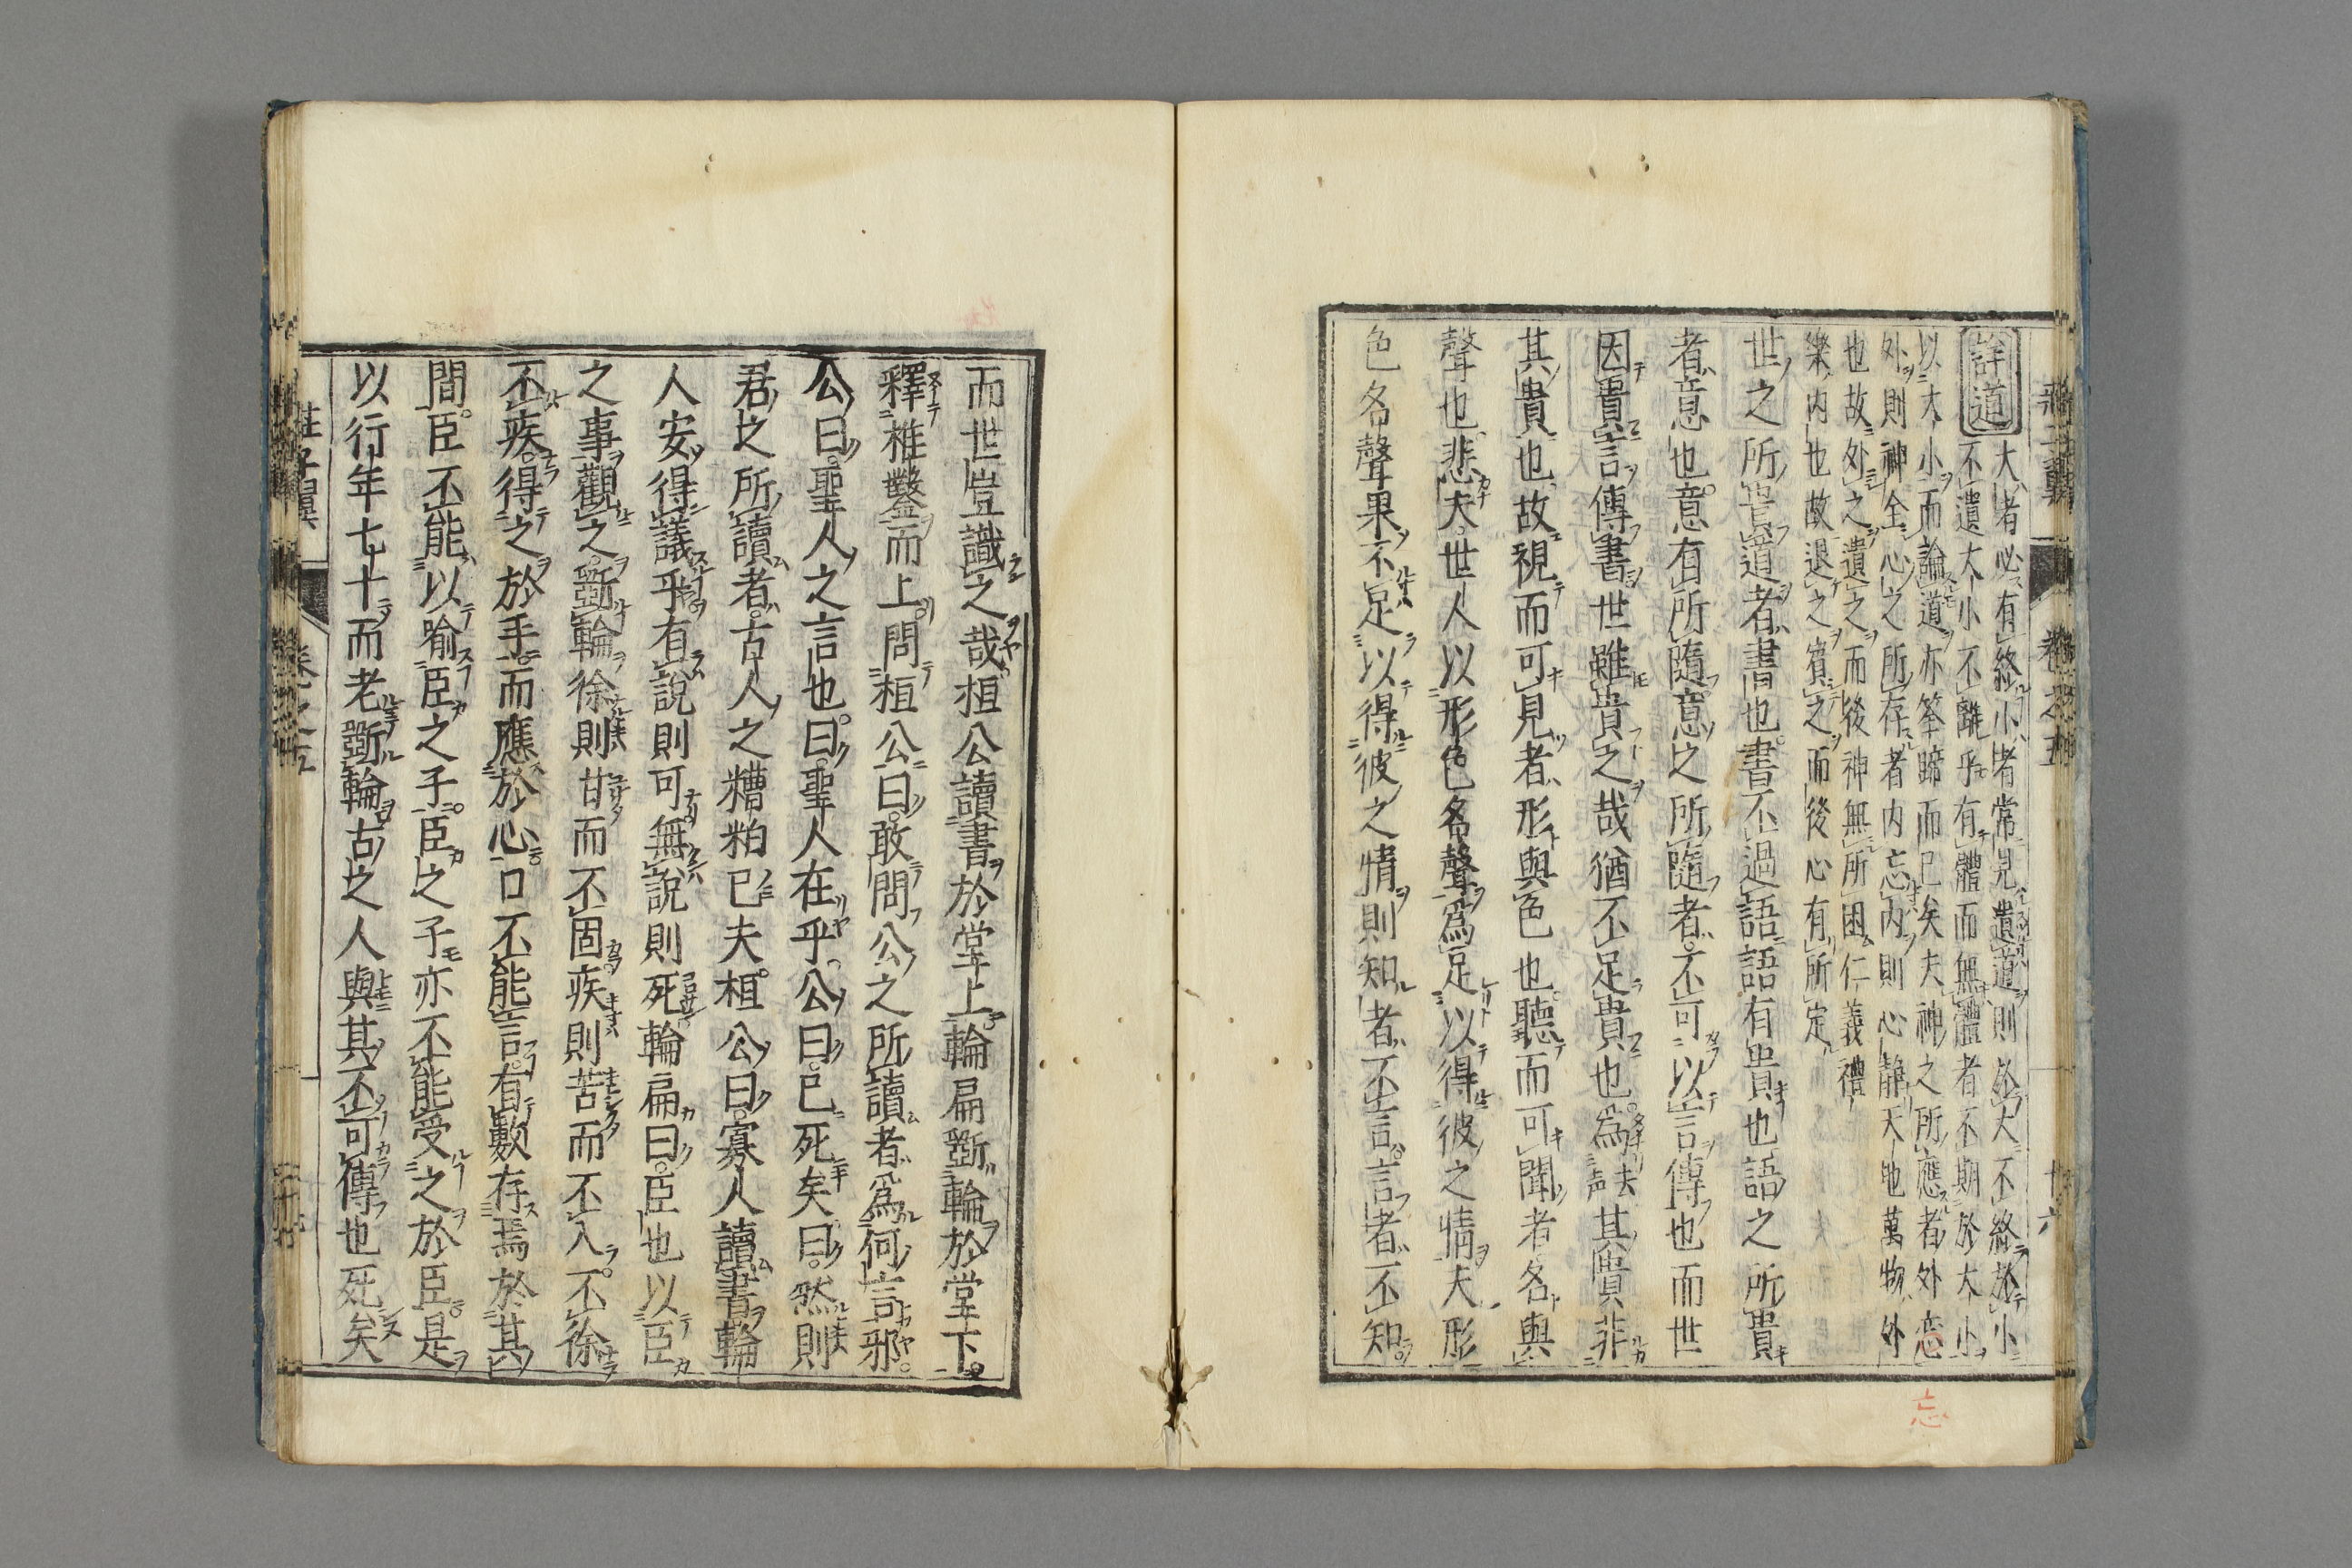 莊子翼 卷之五 廿六
詳道 大者必有終小者常見遺道則於大不終於小
不遺大小不離乎有體而無體者不期於大小
以大小而論道亦筌蹄而已矣夫神之所應者外恋
外則神全心之所存者内忘内則心靜天地萬物外
也故外之遺之而後神無所困仁義禮
樂内也故退之賓之而後心有所定
世之所貴道者書也書不過語語有貴也語之所貴
者意也意有所隨意之所隨者不可以言傳也而世
因貴言傳書世雖貴之哉猶不足貴也爲去声其貴非
其貴也故視而可見者形與色也聽而可聞者名與
聲也悲夫世人以形色名聲爲足以得彼之情夫形
色名聲果不足以得彼之情則知者不言言者不知
忘
而世豈識之哉桓公讀書於堂上輪扁斵輪於堂下
釋椎鑿而上問桓公曰敢問公之所讀者爲何言邪
公曰聖人之言也曰聖人在乎公曰已死矣曰然則
君之所讀者古人之糟粕已夫桓公曰寡人讀書輪
人安得議乎有說則可無說則死輪扁曰臣也以臣
之事觀之斵輪徐則甘而不固疾則苦而不入不徐
不疾得之於手而應於心口不能言有數存焉於其
間臣不能以喻臣之子臣之子亦不能受之於臣是
以行年七十而老斵輪古之人與其不可傳也死矣
莊子翼 卷之五 二十七